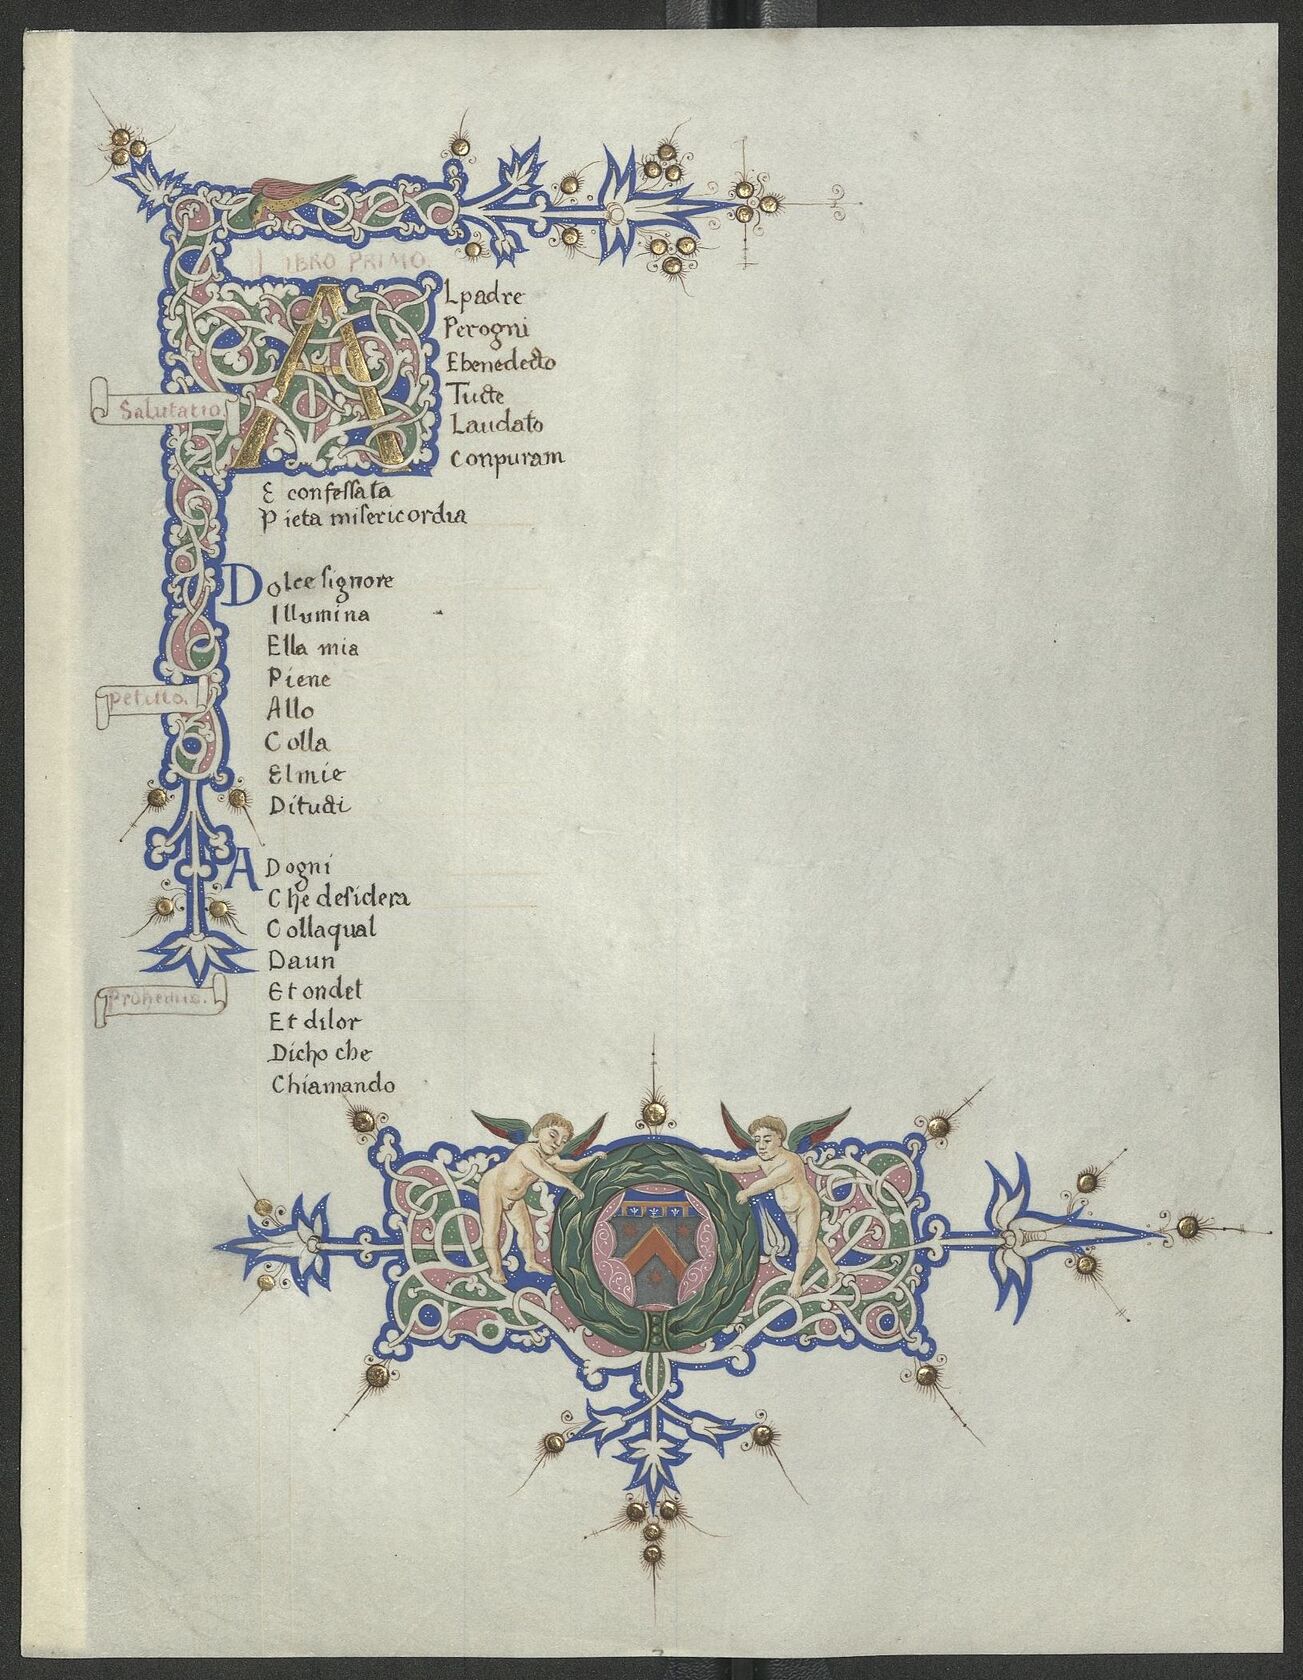 LIBRO PRIMO.
ALpadre
Perogni
Ebenedecto
Tucte
Laudato
Conpuram
E confeſſata
Pieta miſericordia
Salutatio.
Dolce ſignore
Illumina
Ella mia
Piene
Allo
Colla
Elmie
Ditucti
Petitio.
ADogni
Che deſidera
Collaqual
Daun
Et ondel
Et dilor
Dicho che
Chiamando
Prohemio.